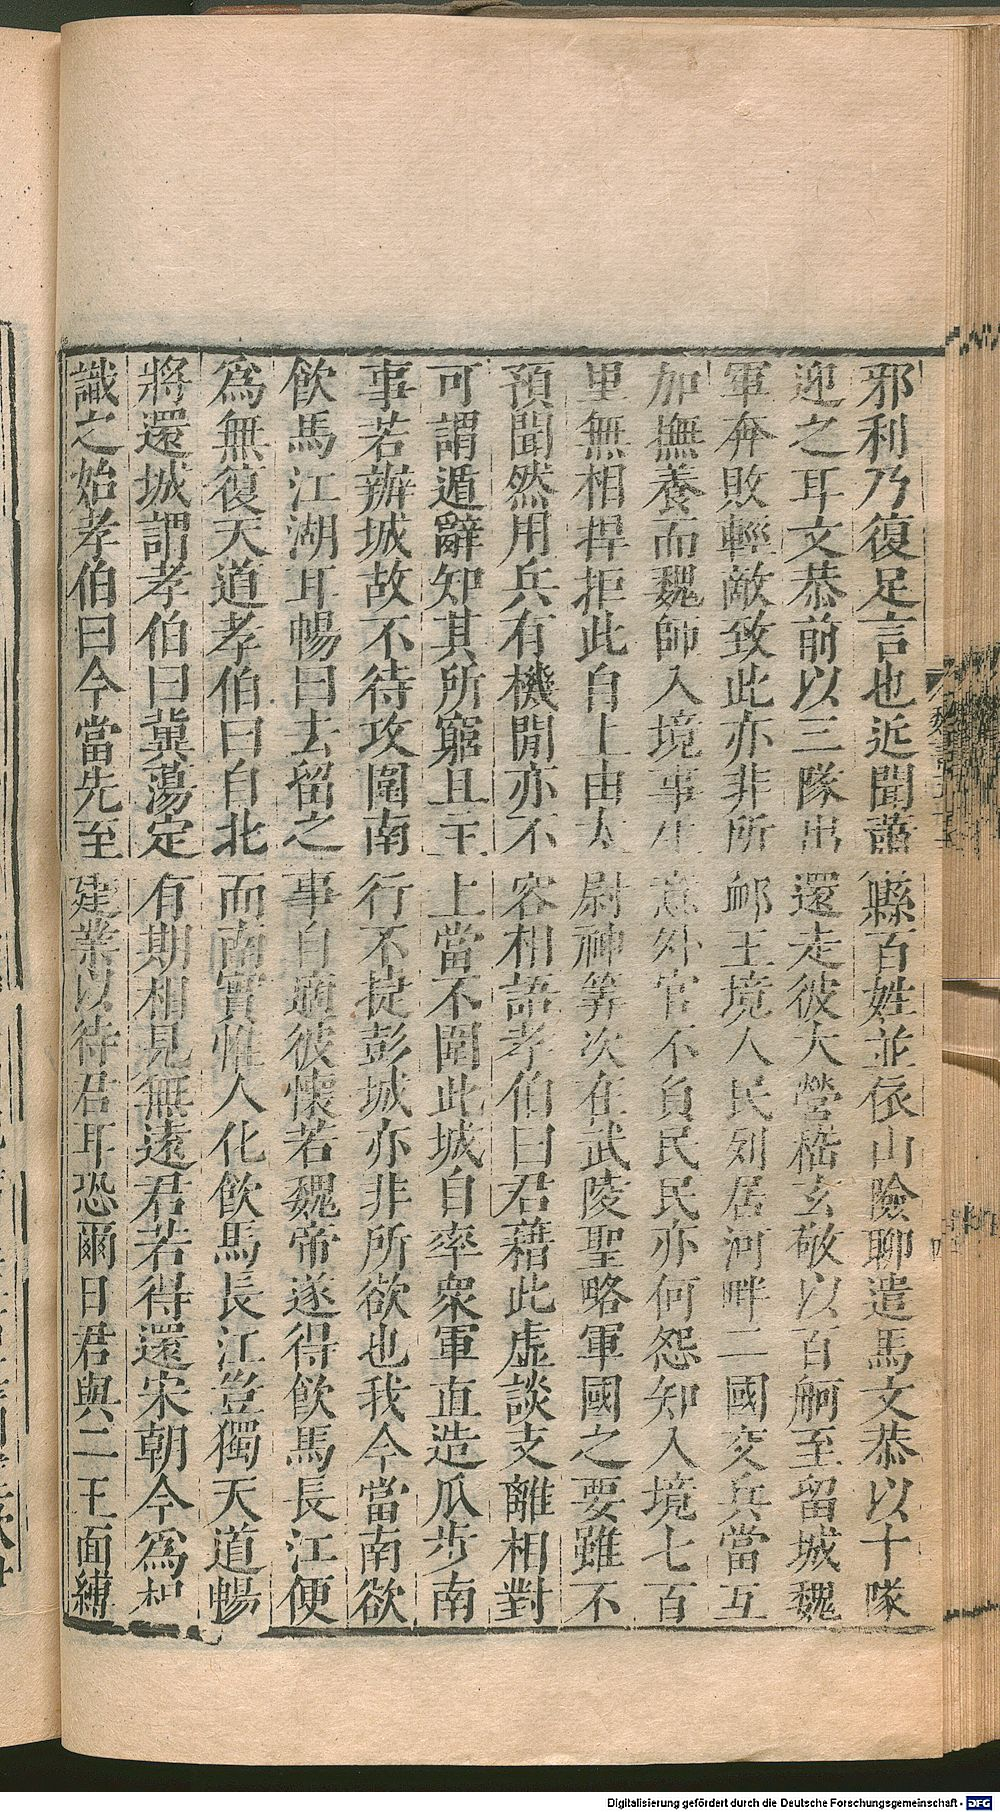 邪利乃復足言也近聞蕭縣百姓並依山險聊遣馬文恭以十隊
迎之耳文恭前以三隊出還走彼大營嵇玄敬以百舸至留城魏
軍奔敗輕敵致此亦非所䘏王境人民列居河畔二國交兵當互
加撫養而魏師入境事生意外官不負民民亦何怨知入境七百
里無相捍拒此自上由太尉神筭次在武陵聖略軍國之要雖不
預聞然用兵有機閒亦不容相語孝伯曰君藉此虛談支離相對
可謂遁辭知其所窮且主上當不圍此城自率衆軍直造瓜步南
事若辦城故不待攻圍南行不捷彭城亦非所欲也我今當南欲
飲馬江湖耳暢曰去留之事自適彼懷若魏帝遂得飲馬長江便
爲無復天道孝伯曰自北而南實惟人化飲馬長江豈獨天道暢
將還城謂孝伯曰冀蕩定有期相見無遠君若得還宋朝今爲相
識之始孝伯曰今當先至建業以待君耳恐爾日君與二王面縛
Digitalisierung gefördert durch die Deutsche Forschungsgemeinschaft - DFG